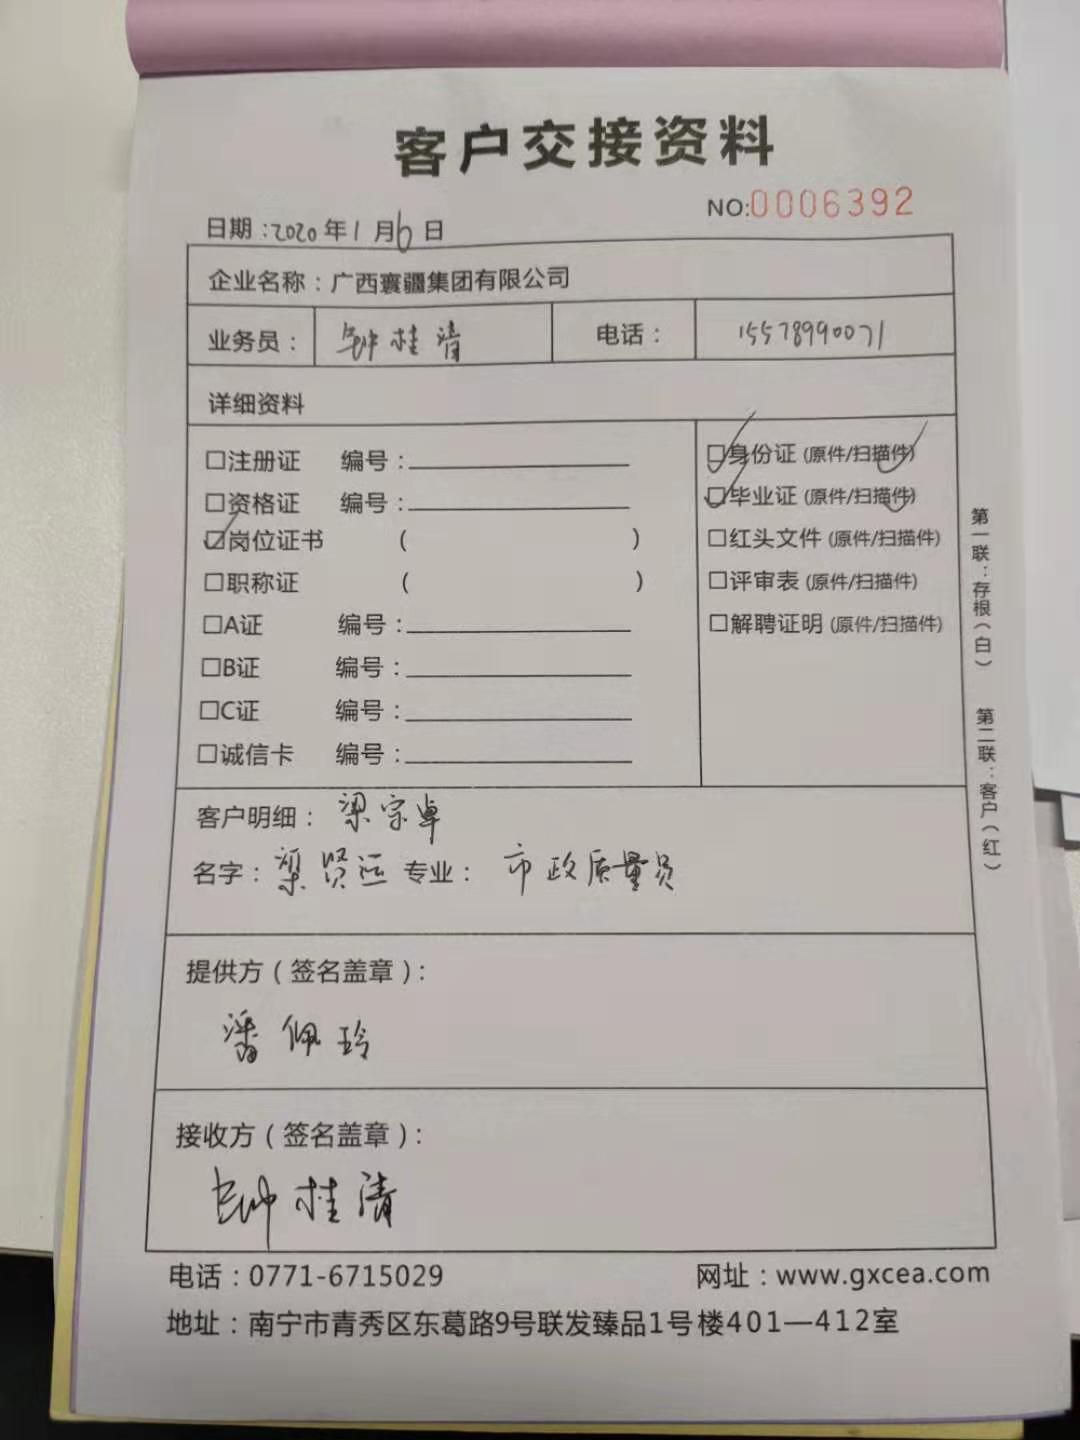 客户交接资料
NO:0006392
日期:2020年1月6日
企业名称：广西寰疆集团有限公司
业务员： 钟桂清 电话： 15578990071
详细资料
□注册证 编号：
□资格证 编号：
☑岗位证书 ( )
□职称证 ( )
□A证 编号：
□B证 编号：
□C证 编号：
□诚信卡 编号：
☑身份证(原件/扫描件)
☑毕业证(原件/扫描件)
□红头文件(原件/扫描件)
□评审表(原件/扫描件)
□解聘证明(原件/扫描件)
客户明细： 梁宗卓
名字：梁贤运 专业： 市政质量员
提供方(签名盖章)：
潘佩玲
接收方(签名盖章)：
钟桂清
电话：0771-6715029 网址：www.gxcea.com
地址：南宁市青秀区东葛路9号联发臻品1号楼401—412室
第一联：存根(白)
第二联：客户(红)